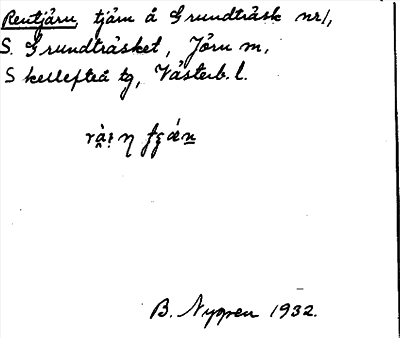 Rentjärn, tjärn å Grundträsk nr 1,
S. Grundträsket, Jörn sn,
Skellefteå tg, Västerb. l.
B. Nygren 1932.